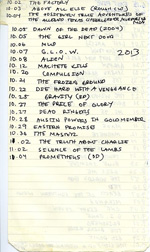 10.02 THE FACTORY
10.03 ABOVE ALL ELSE (ROUGH CUT)
10.04 THE POSITIVELY TRUE ADVENTURES OF THE ALLEGED TEXAS CHEERLEADER MURDERING MOM
10.05 DAWN OF THE DEAD (2004)
10.05 THE GIRL NEXT DOOR
10.06 MUD
10.07 G.L.O.W. 2013
10.08 ALDEN
10.12 MACHETE KILLS
10.20 COMPULSION
10.21 THE FROZEN GROUND
10.23 DIE HARD WITH A VENGEANCE
10.25 GRAVITY (3D)
10.27 THE PRICE OF GLORY
10.27 DEAD RINGERS
10.28 AUSTIN POWERS IN GOLDMEMBER
10.29 EASTERN PROMISES
10.30 THE MASTER
11.02 THE TRUTH ABOUT CHARLIE
11.02 SILENCE OF THE LAMBS
11.04 PROMETHEUS (3D)